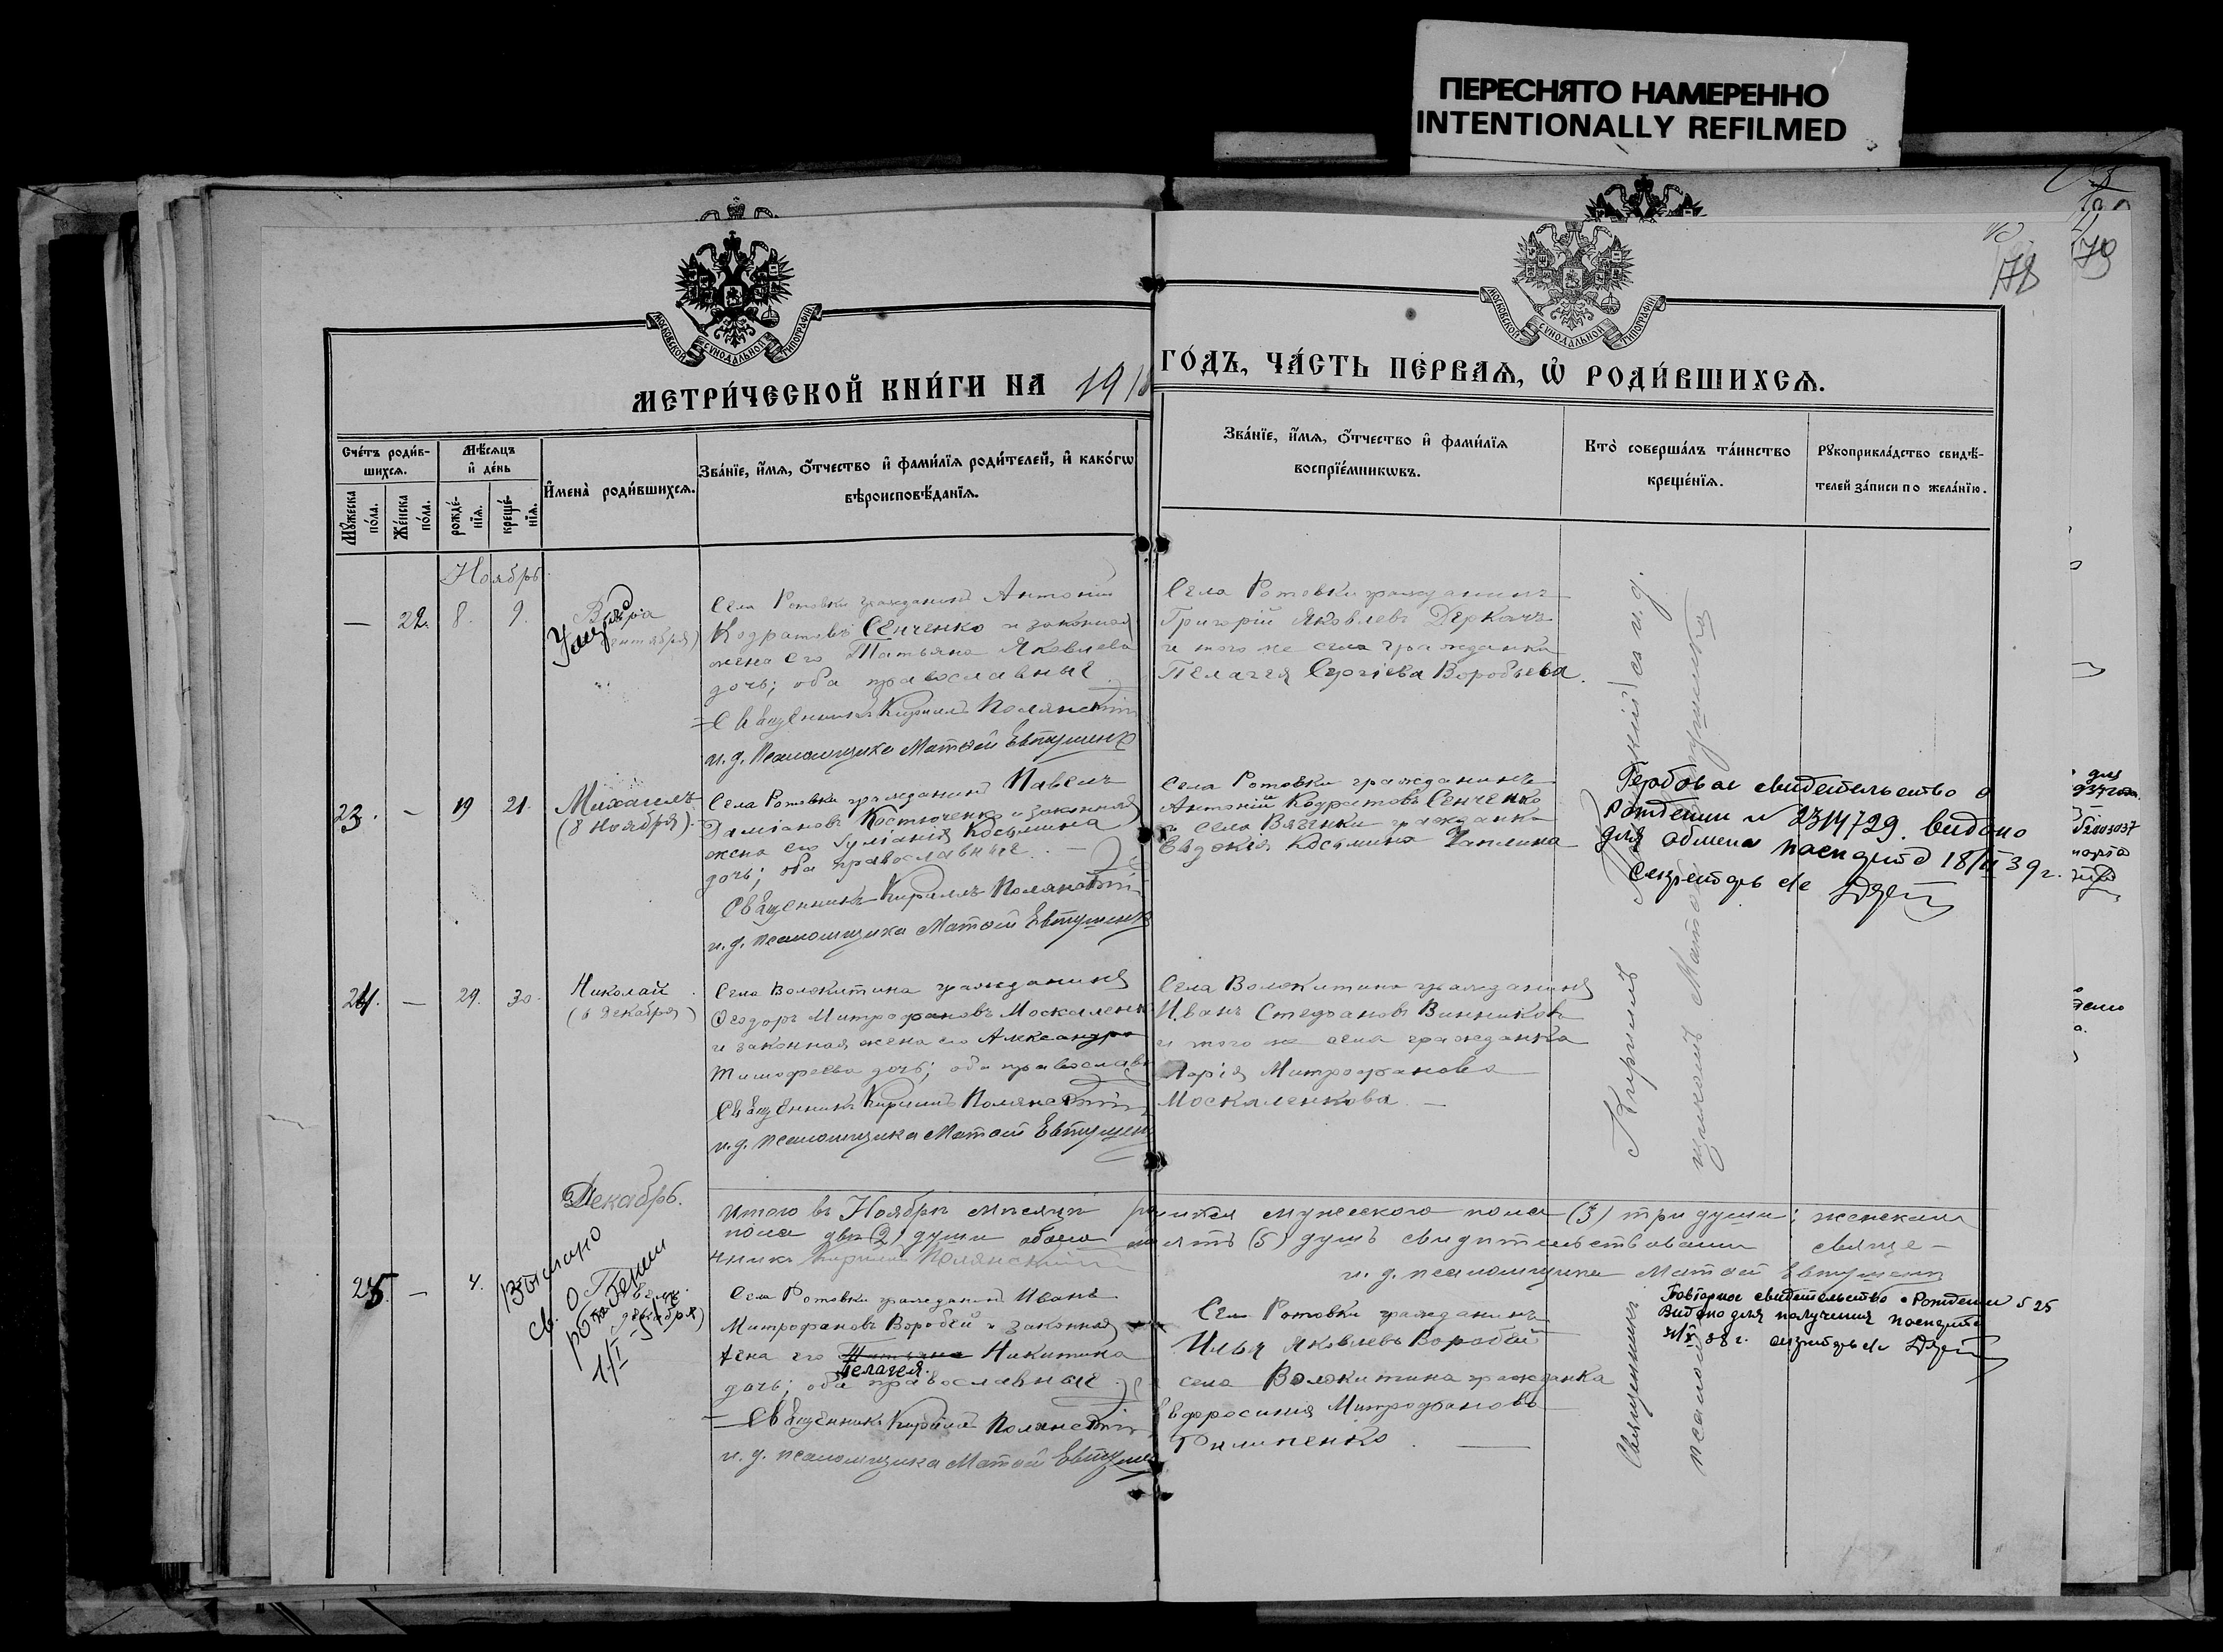 ПЕРЕСНЯТО НАМЕРЕННО
INTENTIONALLY REFILMED
178
МОСКОВСКОЙ СѴНОДАЛЬНОЙ ТИПОГРАФІИ
МОСКОВСКОЙ СѴНОДАЛЬНОЙ ТИПОГРАФІИ
МЕТРИ́ЧЕСКОЙ КНИ́ГИ НА 191
ГО́ДЪ, ЧА́СТЬ ПЕ́РВАѦ, Ѡ҆ РОДИ́ВШИХСѦ.
Сче́тъ роди́в-
шихсѧ.
Мꙋ́жеска по́ла.
Же́нска по́ла.
Мѣ́сѧцъ
и҆ де́нь
рожде́-
нїѧ.
креще́-
нїѧ.
И҆мена̀ роди́вшихсѧ.
Зва́нїе, и҆́мѧ, ѻ҆́тчество и҆ фами́лїѧ роди́телей, и҆ како́гѡ
вѣроисповѣ́данїѧ.
Зва́нїе, и҆́мѧ, ѻ҆́тчество и҆ фами́лїѧ
воспрїе́мникѡвъ.
Кто̀ соверша́лъ та́инство
креще́нїѧ.
Рꙋкоприкла́дство свидѣ́-
телей за́писи по жела́нїю.
Ноябрь
— 22. 8. 9.
Вѣра
Села Ротовки гражданинъ Антоній
Кодратовъ Сенченко и законная
жена его Татьяна Яковлева
дочь; оба православные
Священникъ Кириллъ Полянскій
и. д. Псаломщика Матѳей Евтушенко
Села Ротовки гражданинъ
Григорій Яковлевъ Деркачъ
и того же села гражданка
Пелагея Сергіева Воробьева.
23. — 19 21.
Михаилъ
(8 Ноября).
Села Ротовки гражданинъ Павелъ
Даміановъ Костюченко и законная
жена его Іуліанія Косьмина
дочь; оба православные. —
Священникъ Кириллъ Полянскій
и. д. псаломщика Матѳей Евтушенко
Села Ротовки гражданинъ
Антоній Кодратовъ Сенченко
и села Вязенки гражданка
Евдокія Косьмина Чаплина
Гербовое свидетельство о
рождении № 2314729. видано
для обмена паспорта 18/ 39 г.
Секретарь с/с
24. — 29. 30.
Николай
(6 декабря)
Села Волокитина гражданинъ
Ѳеодоръ Митрофановъ Москаленко
и законная жена его Александра
Тимофеева дочь; оба православ
Священникъ Кириллъ Полянскій
и. д. псаломщика Матѳей Евтушен
Села Волокитина гражданинъ
Иванъ Стефановъ Винниковъ
и того же села гражданка
Марія Митрофанова
Москаленкова. —
Декабрь.
Итого въ Ноябрѣ мѣсяцѣ родился мужескаго пола (3) три души; женскаго
пола двѣ (2) души обоего пять (5) душъ свидѣтельствовали свяще-
нникъ Кириллъ Полянскій
и. д. псаломщика Матѳей Евтушенко
25. — 4.
Выдано
св. о
рождении
Села Ротовки гражданинъ Иванъ
Митрофановъ Воробей и законная
жена его Татьяна Никитина
Пелагея.
дочь; оба православные
Священникъ Кириллъ Полянскій
и. д. псаломщика Матѳей Евтуше
Села Ротовки гражданинъ
Илья Яковлевъ Воробей
села Волокитина гражданка
Евфросинія Митрофановъ
Пилипенко. —
Повторное свидетельство о Рождении
Видано для получения паспорта
38 г. секретарь с/с
Священникъ Кириллъ
псаломщикомъ Матѳ